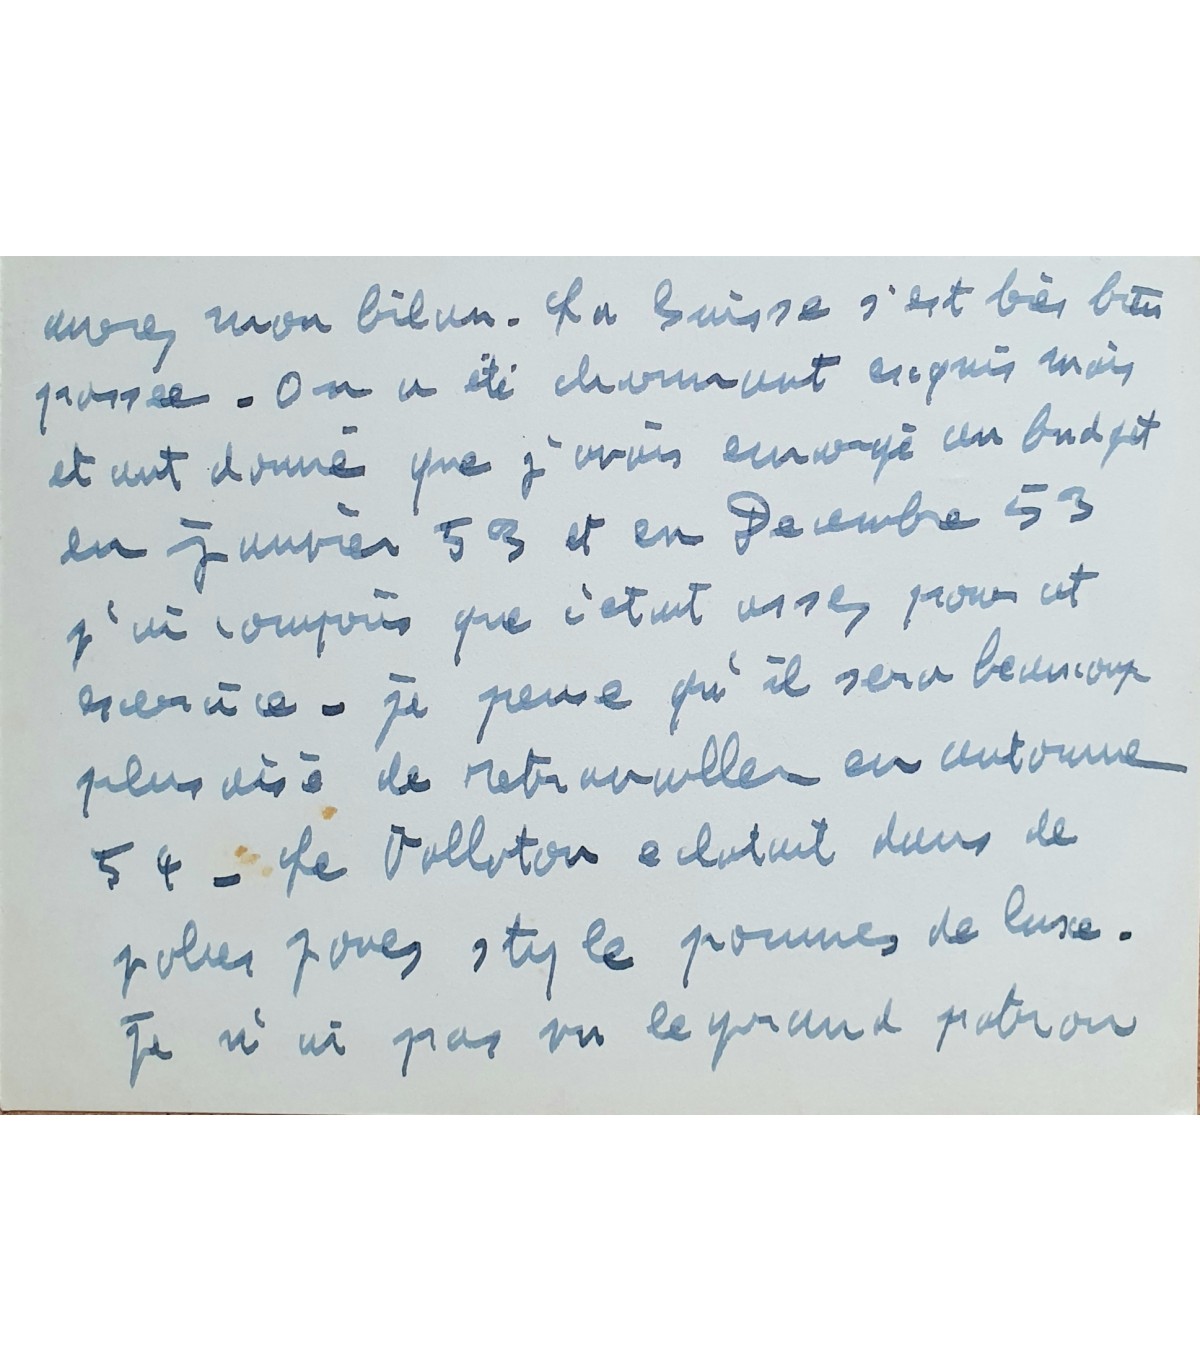 aurez mon bilan. La Suisse s'est très bien
passée. On a été charmant exquis mais
etant donné que j'avais emargé au budget
en Janvier 53 et en Decembre 53
j'ai compris que c'etait assez pour cet
exercice - je pense qu'il sera beaucoup
plus aisé de retravailler en automne
54 - Le Valloton eclatait dans de
joues style pommes de luxe.
Je n'ai pas vu le grand patron